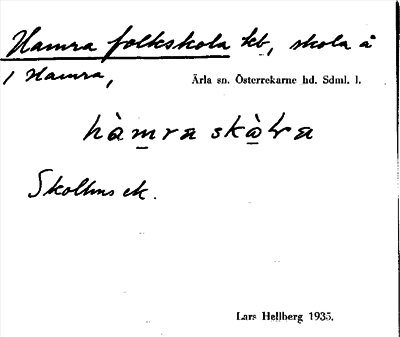 Hamra folkskola kb, skola å
1 Hamra,
Ärla sn. Österrekarne hd. Sdml. l.
hàmra skàlra
Skolhus ek.
Lars Hellberg 1935.